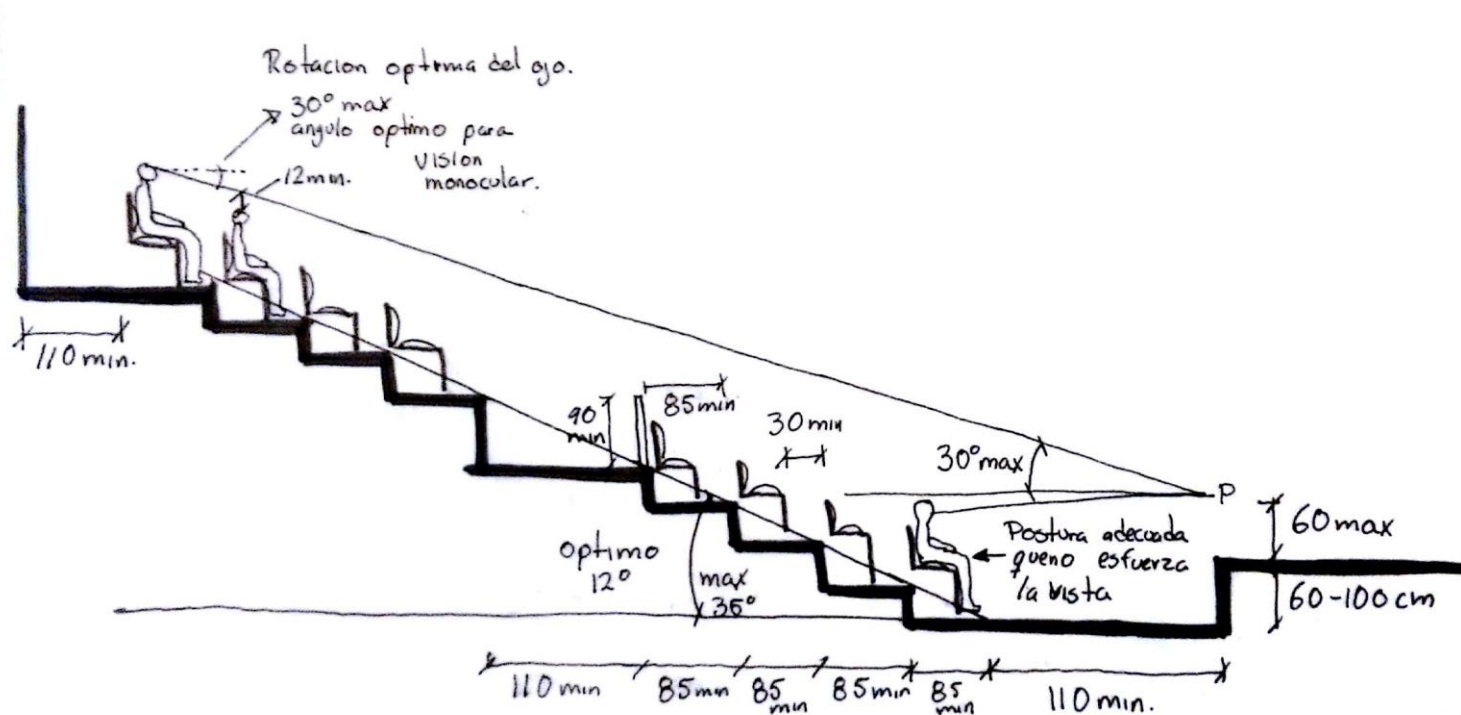 Rotacion optima del ojo.
30° max
angulo optimo para
vision
monocular.
12 min.
110 min.
90
min
85 min
30 min
30° max
P
60 max
Postura adecuada
que no esfuerza
la vista
60-100 cm
optimo
12°
max
35°
110 min
85 min
85
min
85 min
85
min
110 min.